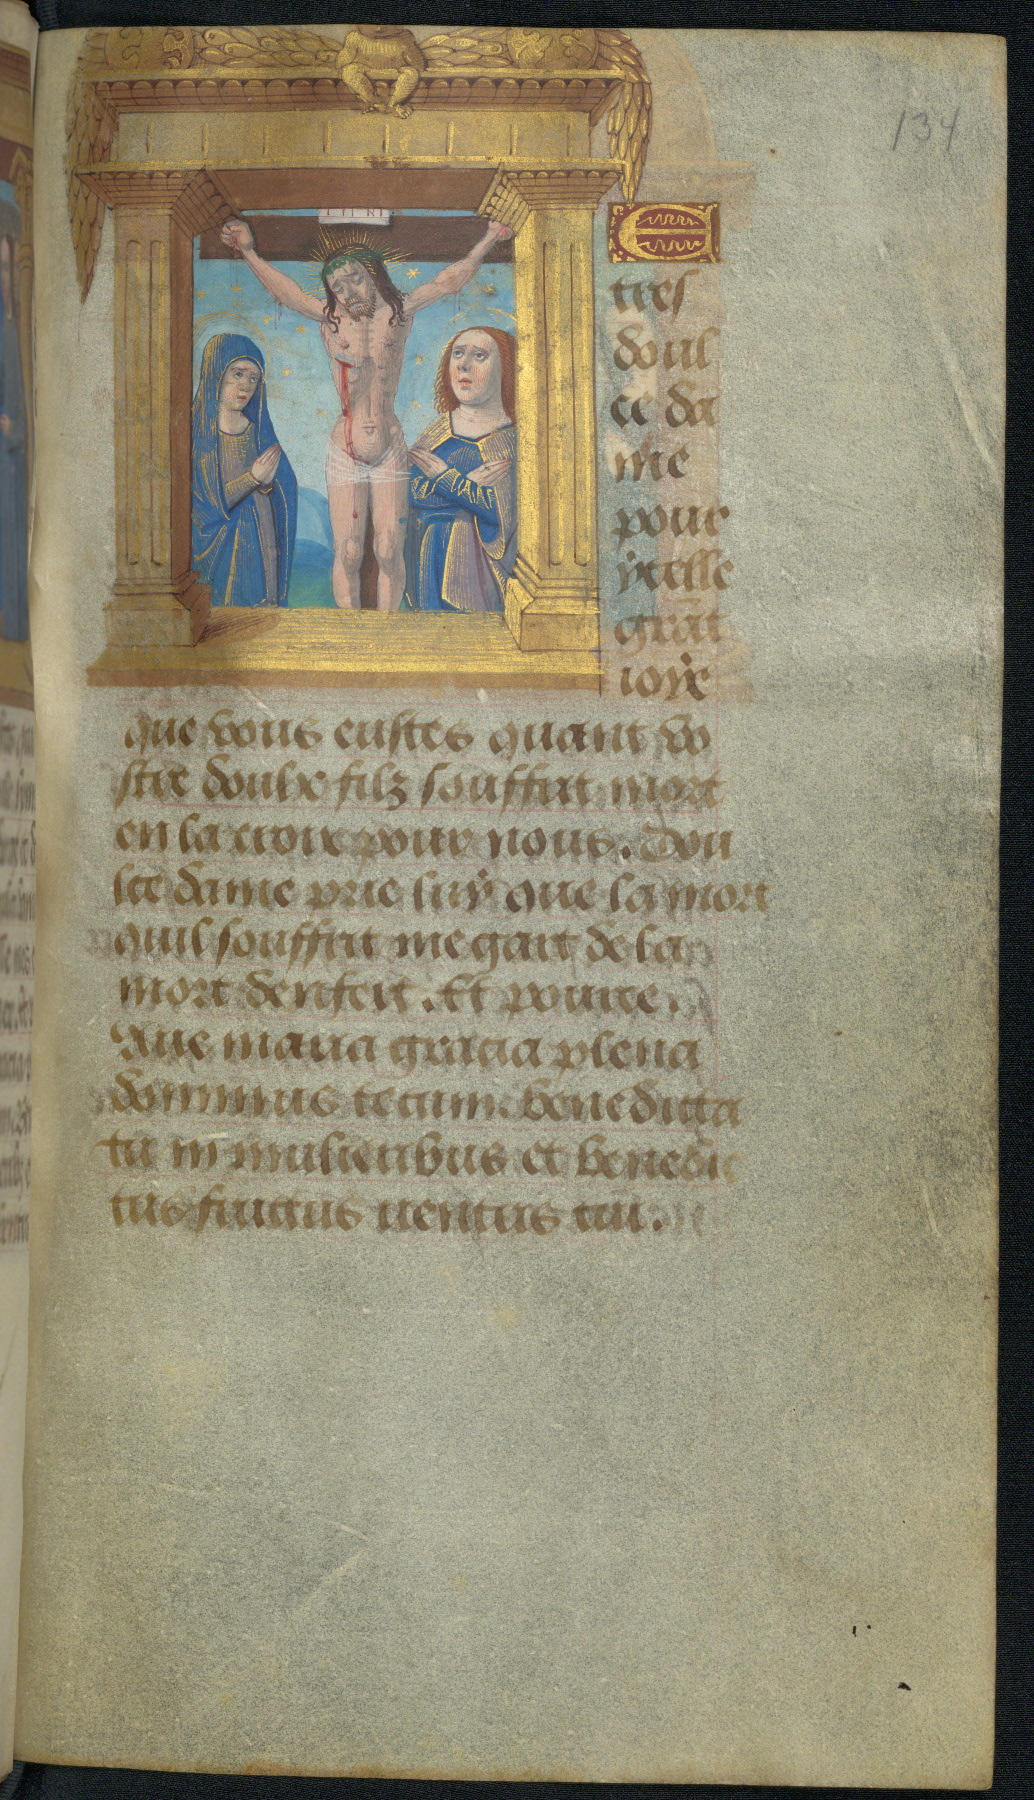 134
I N RI
E
tres
doul
ce da
me
pour
ycelle
grāt
ioye
que vous eustes quant vo
stre doulx filz souffrit mort
en la croix pour nous. Dou
lce dame prie luy que la mort
quil souffrit me gart de la
mort denfert. Et pource.
Aue maria gracia plena
dominus tecum. benedicta
tu in mulieribus et benedic
tus fructus uentris tui.